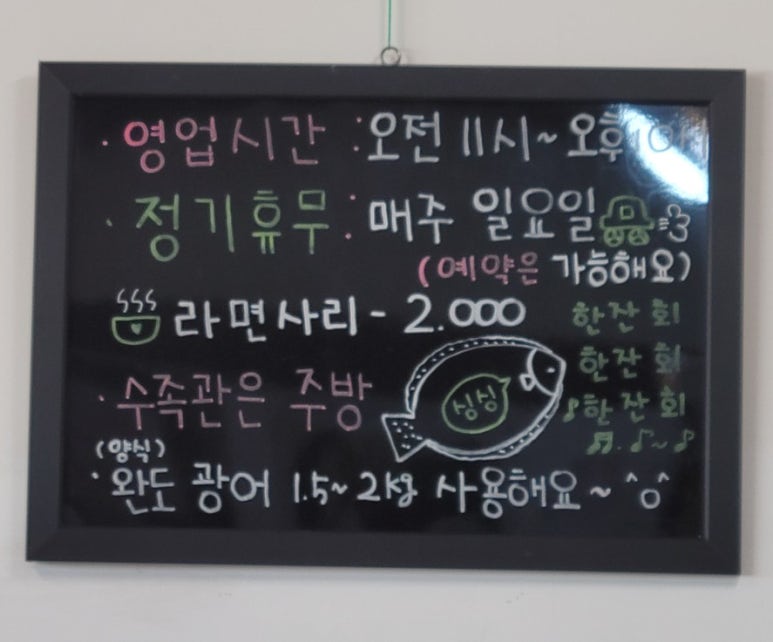 · 영업시간 : 오전 11시~ 오후 10시
· 정기휴무 : 매주 일요일
(예약은 가능해요)
라면사리 - 2.000
한잔 회
한잔 회
♪한잔 회
♬. ♪~♪
· 수족관은 주방
싱싱
(양식)
· 완도 광어 1.5~2kg 사용해요~ ^o^